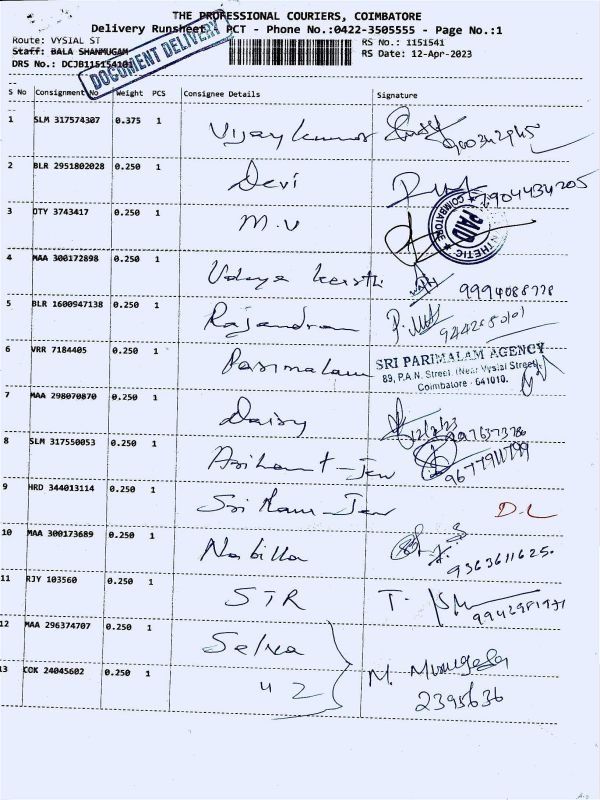 THE PROFESSIONAL COURIERS, COIMBATORE
Delivery Runsheet PCT - Phone No.:0422-3505555 - Page No.:1
Route: VYSIAL ST RS No.: 1151541
Staff: BALA SHANMUGAM RS Date: 12-Apr-2023
DRS No.: DCJB1151541
DOCUMENT DELIVERY
S No Consignment No Weight PCS Consignee Details Signature
1 SLM 317574307 0.375 1 Vijay kumar
2 BLR 2951802028 0.250 1 Devi 7904434205
3 DTY 3743417 0.250 1 M.V
COIMBATORE PAID
4 MAA 300172898 0.250 1 Udaya 9994088778
5 BLR 1600947138 0.250 1 Rajandran
6 VRR 7184405 0.250 1 Parimalam
SRI PARIMALAM AGENCY
89, P.A.N. Street, (Near Vysial Street),
Coimbatore - 641010.
7 MAA 298070870 0.250 1 Daisy
8 SLM 317550053 0.250 1 Arihant-Jew
9 HRD 344013114 0.250 1 Sri Ram-Jew D.L
10 MAA 300173689 0.250 1 Nabilla 9363611625
11 RJY 103560 0.250 1 STR T.
12 MAA 296374707 0.250 1 Selva
13 COK 24045602 0.250 1 M. Murugesh
2395636